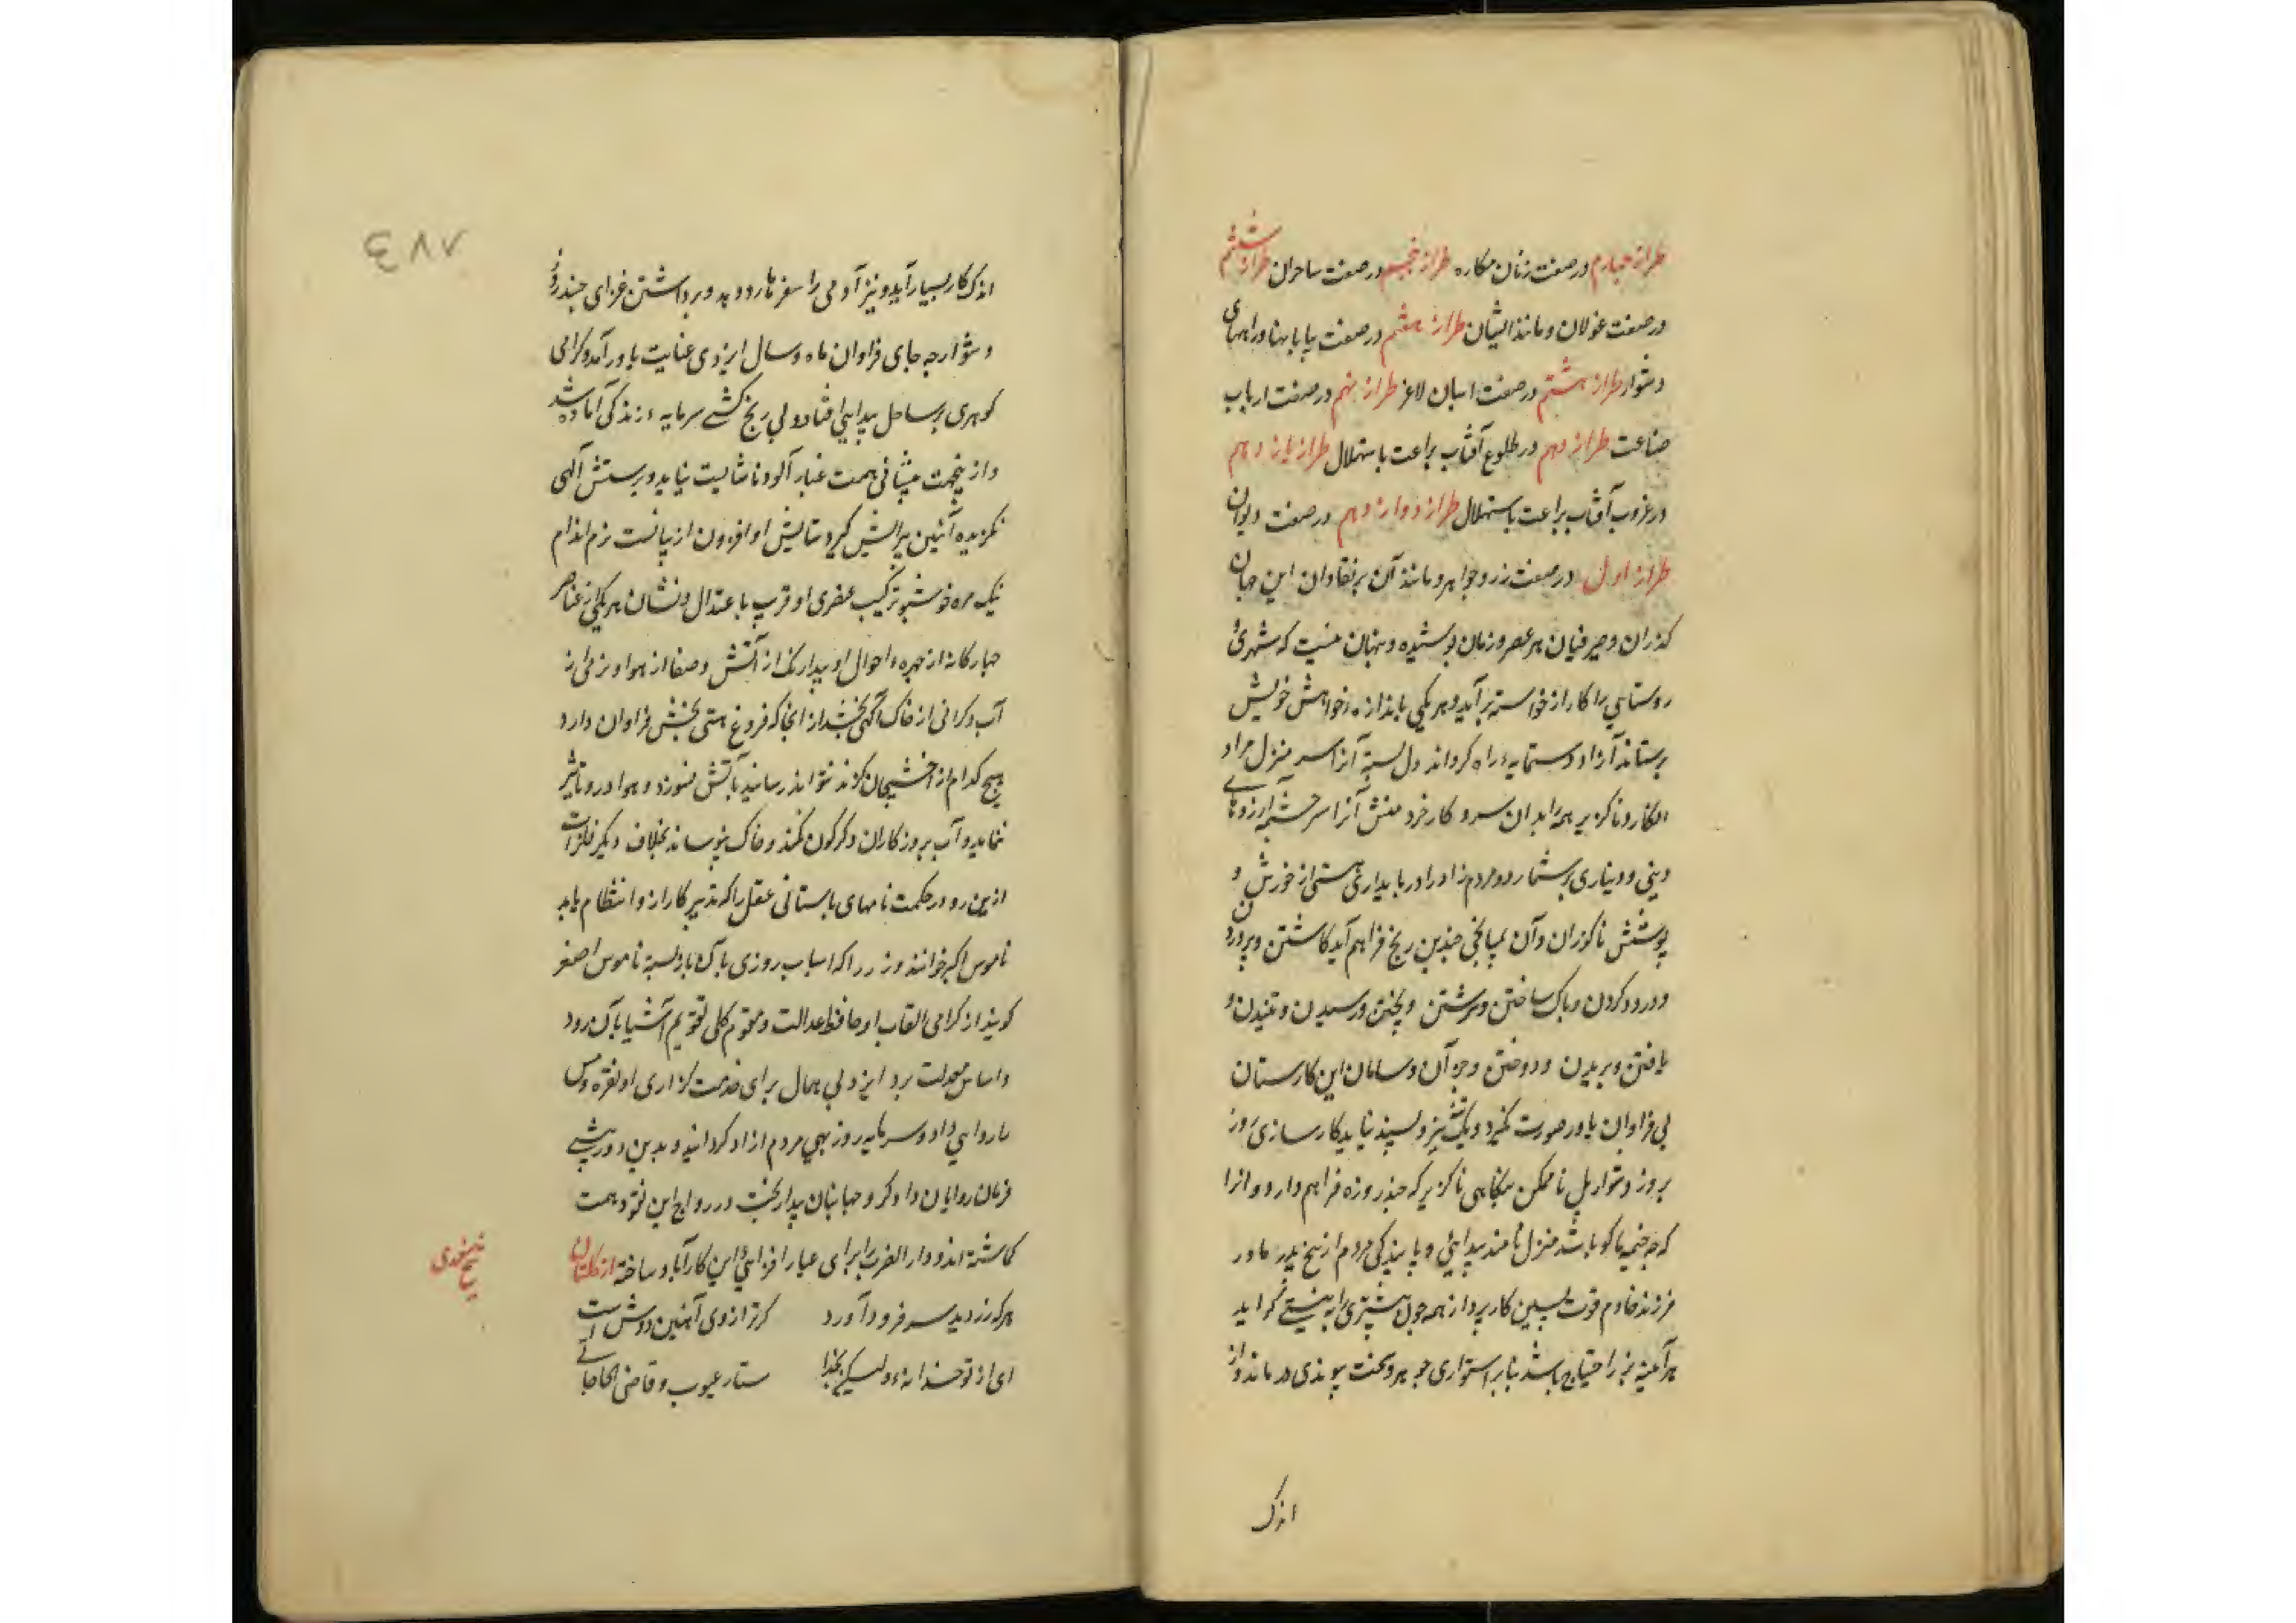 طراز چهارم در صفت زنان مکاره طراز پنجم در صفت ساحران طراز ششم
در صفت غولان و مانند ایشان طراز هفتم در صفت بیابانها و راههای
دشوار طراز هشتم در صفت اسبان لاغر طراز نهم در صفت ارباب
صناعت طراز دهم در طلوع آفتاب براعت باستهلال طراز یازدهم
در غروب آفتاب براعت باستهلال طراز دوازدهم در صفت دیوان
طراز اول در صفت زر و جواهر و مانند آن بر نقادان این جهان
گذران و صیرفیان هر عصر و زمان پوشیده و پنهان نیست که شهری و
روستایی را کار از خواسته برآید و هر یکی باندازه خواهش خویش
برستاند آزاد دستمایه راه گرداند دل بسته آنرا سر منزل مراد
انگارد ناگزیر همه ابدان سرو کار خرد منش آنرا سرچشمه آرزوهای
دینی و دیناوی برشمارد و مردم زاد را در پایداری هستی از خورش و
پوشش ناگزران و آن بمیانجی چندین رنج فراهم آید کاشتن و پروردن
و درود کردن و پاک ساختن و سرشتن و پختن و رسیدن و تنیدن و
بافتن و بریدن و دوختن و جز آن و سامان این کارستان
بی فراوان یاور صورت نگیرد و یک تنه نیز و بسیند نیاید کارسازی روز
بروز دشوار بل ناممکن بنگاهی ناگزیر که چند روزه فراهم دارد و آنرا
که چه خیمه یا کو باشد منزل نامند پیدایی و پایندگی مردم از پنج پدر مادر
فرزند خادم قوت پسین کارپرداز همه چون بیشتری را به نیستی گراید
هر آینه نیز احتیاج باشد بنابر استواری جوهر و سخت پیوندی در ماند و از
اندک
۷۸۷
اندک کار بسیار آید و نیز آدمی را سفر ناروردو بد و برداشتن غذای چند روز
دشوار چه جای فراوان ماه و سال ایزدی عنایت یاور آمد و گرامی
گوهری بر ساحل پیدایی افتاد و بی رنج کشی سرمایه زندگی آماده شد
و ازینجهت پیشانی همت غبارآلود ناشایست نیاید و پرستش آلهی
گزیده آئین پیرایش گیرد ستایش او افزون از پیاست نرم اندام
نیک مزه خوشبو ترکیب عنصری او قریب باعتدال و نشان هر یکی از عناصر
چهارگانه از چهره احوال او پیدا رنگ از آتش و صفا از هوا و نرمی از
آب و گرانی از خاک آگهی بخشد از آنجا که فروغ هستی بخش فراوان دارد
هیچ کدام از اخشیجان گزند نتواند رسانید بآتش نسوزد و هوا درو تاثیر
ننماید و آب بروزگاران دگرگون نکند و خاک نپوساند بخلاف دیگر فلزات
ازین رو در حکمت نامهای باستانی عقل را که تدبیر کار ازو انتظام یابد
ناموس اکبر خوانند و زر را که اسباب روزی باک باو بسته ناموس اصغر
گویند از گرامی القاب او حافظ عدالت و مقوم کلی تقویم اشیا بآن رود
و اساس معدلت برد ایزد بی همال برای خدمت گزاری او نقره و مس
را روایی داد و سرمایه روز بهی مردم ازاد گردانید و بدین دوربینی
فرمان روایان دادگر و جهانبان بیداربخت در رواج این نقود همت
گماشته اند و دار الضرب را برای عیار افزایی این کار آباد ساخته از گلستان
شیخ سعدی
هر که زر دید سر فرود آورد      گر ترازوی آهنین دوش است
ای زر تو خدا نه ولیکن بخدا      ستار عیوب و قاضی الحاجاتی